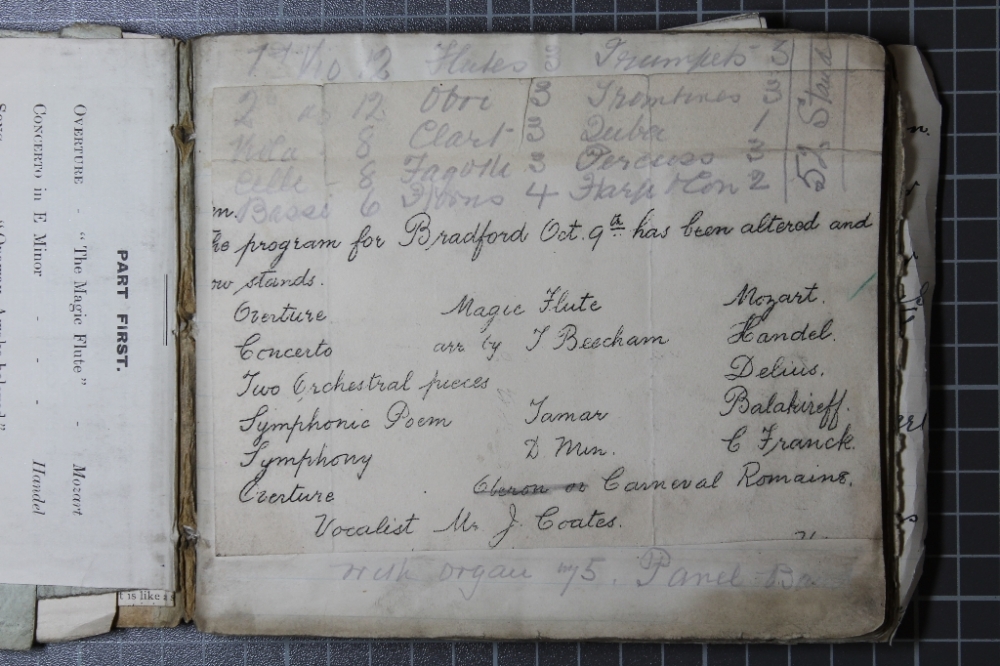 PART FIRST.
OVERTURE - "The Magic Flute" - Mozart
CONCERTO in E Minor - - - Handel
12 Flutes 3 Trumpets 3
2 12 Oboi 3 Trombones 3
Viola - 8 Clart 3 Tuba 1
Celli - 8 Fagotti 3 Percuss 3
Bassi 6 Horns 4 Harp + Con 2
program for Bradford Oct. 9th has been altered and
stands.
Overture Magic Flute Mozart.
Concerto arr by T Beecham Handel.
Two Orchestral pieces Delius.
Symphonic Poem Tamar Balakireff.
Symphony D. Min. C Franck.
Overture Oberon or Carneval Romaine.
Vocalist Mr J. Coates.
with organ 5. Panel
t is like a